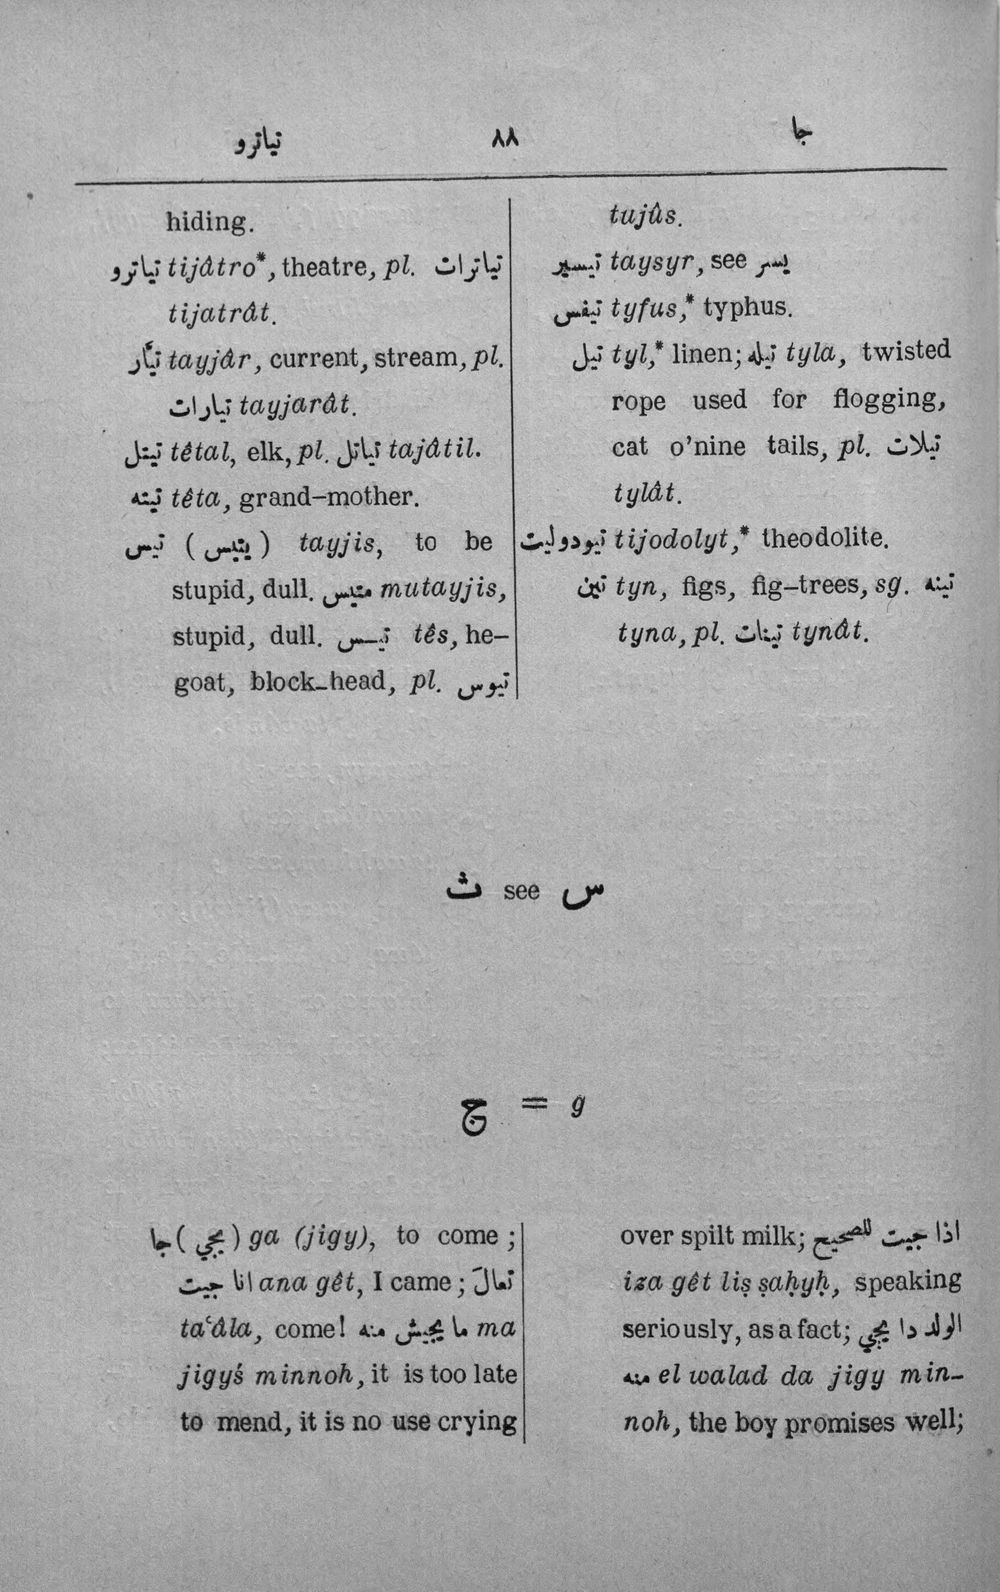 تياترو ٨٨ جا
hiding.
تياترو tijâtro*, theatre, pl. تياترات
tijatrât.
تيّار tayjâr, current, stream, pl.
تيارات tayjarât.
تيتل têtal, elk, pl. تياتل tajâtil.
تيته têta, grand-mother.
تيس (يتيس) tayjis, to be
stupid, dull. متيس mutayjis,
stupid, dull. تيس tês, he-
goat, block-head, pl. تيوس
tujûs.
تيسير taysyr, see يسر
تيفس tyfus,* typhus.
تيل tyl,* linen; تيله tyla, twisted
rope used for flogging,
cat o'nine tails, pl. تيلات
tylât.
تيودوليت tijodolyt,* theodolite.
تين tyn, figs, fig-trees, sg. تينه
tyna, pl. تينات tynât.
ث see س
ج = g
جا (يجي) ga (jigy), to come;
انا جيت ana gêt, I came; تعالَ
taʿâla, come! ما يجيش منه ma
jigyś minnoh, it is too late
to mend, it is no use crying
over spilt milk; اذا جيت للصحيح
iza gêt liṣ ṣaḥyḥ, speaking
seriously, as a fact; الولد دا يجي
منه el walad da jigy min-
noh, the boy promises well;